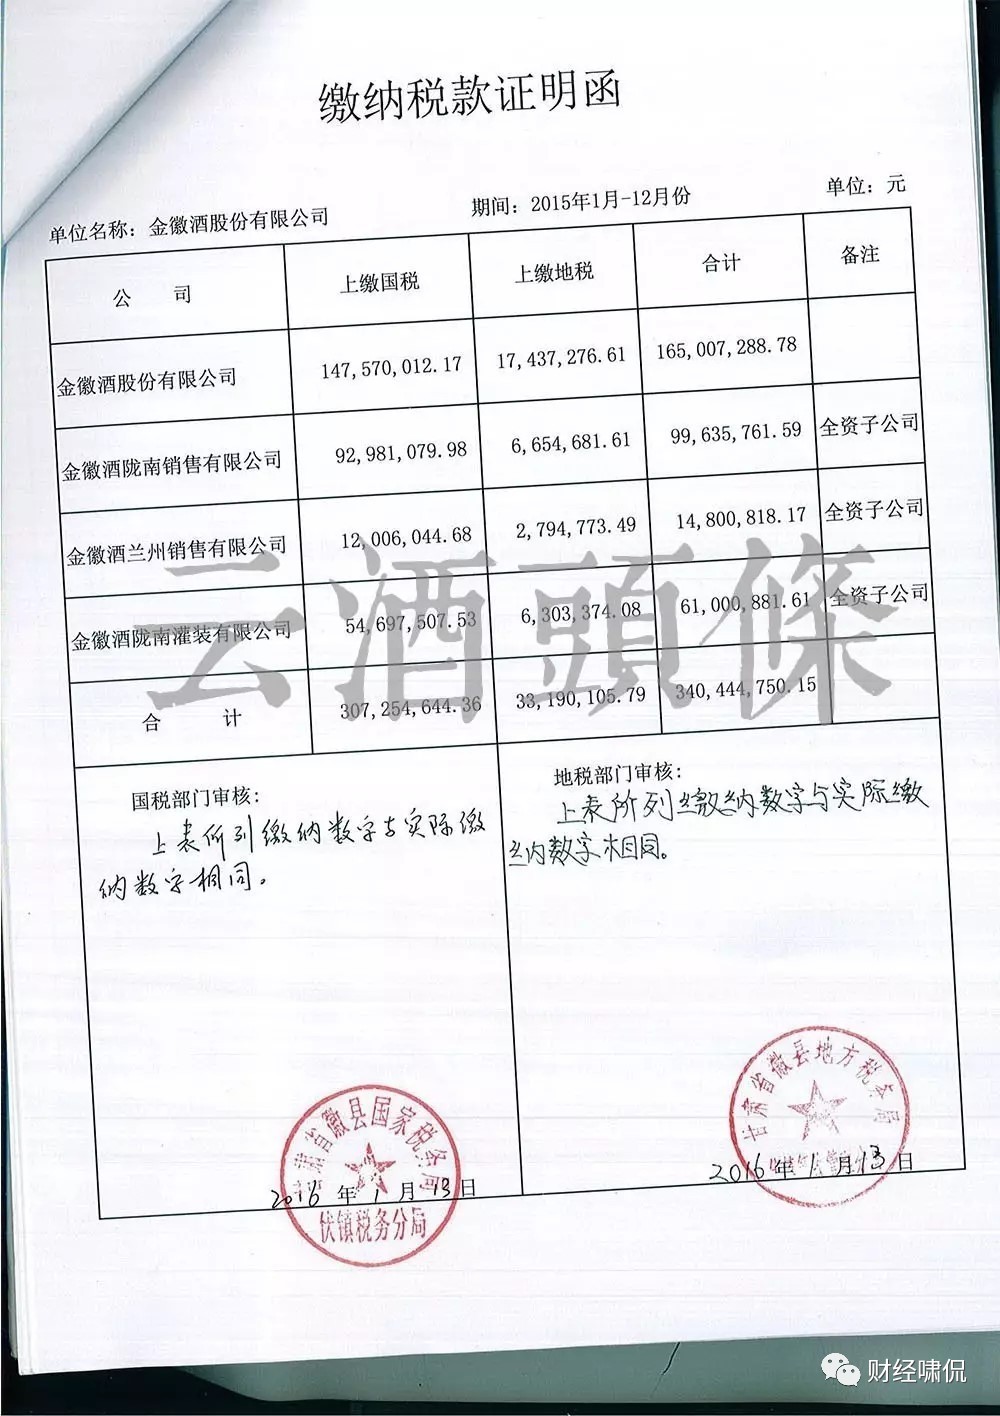 缴纳税款证明函
单位名称：金徽酒股份有限公司 期间：2015年1月-12月份 单位：元
公 司 上缴国税 上缴地税 合计 备注
金徽酒股份有限公司 147,570,012.17 17,437,276.61 165,007,288.78
金徽酒陇南销售有限公司 92,981,079.98 6,654,681.61 99,635,761.59 全资子公司
金徽酒兰州销售有限公司 12,006,044.68 2,794,773.49 14,800,818.17 全资子公司
金徽酒陇南灌装有限公司 54,697,507.53 6,303,374.08 61,000,881.61 全资子公司
合 计 307,254,644.36 33,190,105.79 340,444,750.15
云酒頭條
国税部门审核：
上表所列缴纳数字与实际缴
纳数字相同。
地税部门审核：
上表所列缴纳数字与实际缴
纳数字相同。
肃省徽县国家税务局
2016年1月13日
伏镇税务分局
甘肃省徽县地方税务局
2016年1月13日
财经啸侃